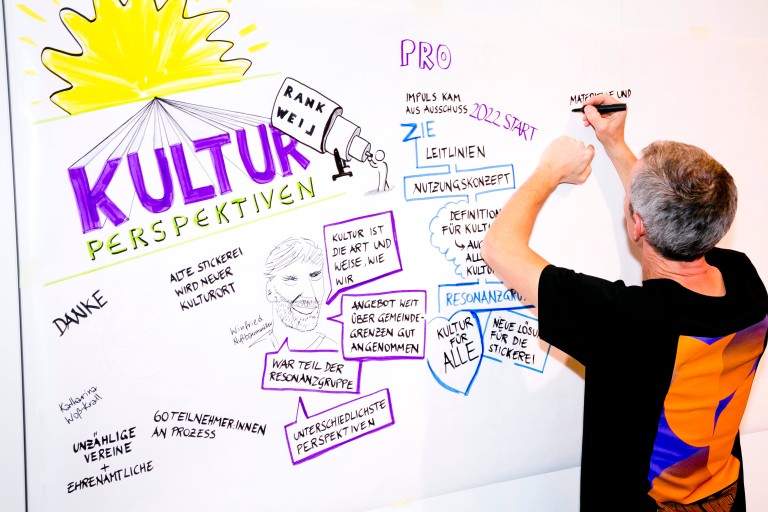 RANK
WEIL
KULTUR
PERSPEKTIVEN
DANKE
ALTE STICKEREI
WIRD NEUER
KULTURORT
KULTUR IST
DIE ART UND
WEISE, WIE
WIR
Winfried
ANGEBOT WEIT
ÜBER GEMEINDE-
GRENZEN GUT
ANGENOMMEN
WAR TEIL DER
RESONANZGRUPPE
UNTERSCHIEDLICHSTE
PERSPEKTIVEN
Katharina
Wöß-Krall
60 TEILNEHMER:INNEN
AN PROZESS
UNZÄHLIGE
VEREINE
+
EHRENAMTLICHE
PRO
IMPULS KAM
AUS AUSSCHUSS
2022 START
ZIE
LEITLINIEN
NUTZUNGSKONZEPT
DEFINITION
FÜR KULTU
ALL
KULTU
RESONANZGRU
KULTUR
FÜR
ALLE
NEUE LÖSU
FÜR DIE
STICKEREI
UND